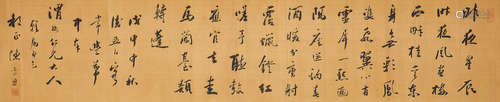 昨夜星辰
昨夜風畫樓
西畔桂堂東
身無彩鳳
雙飛翼心有
靈犀一點通
隔座送鉤春
酒暖分曹射
覆蠟鐙紅
嗟予聽鼓
應官去走
馬蘭臺類
轉蓬
戊申中秋
後五日
仁兄大人